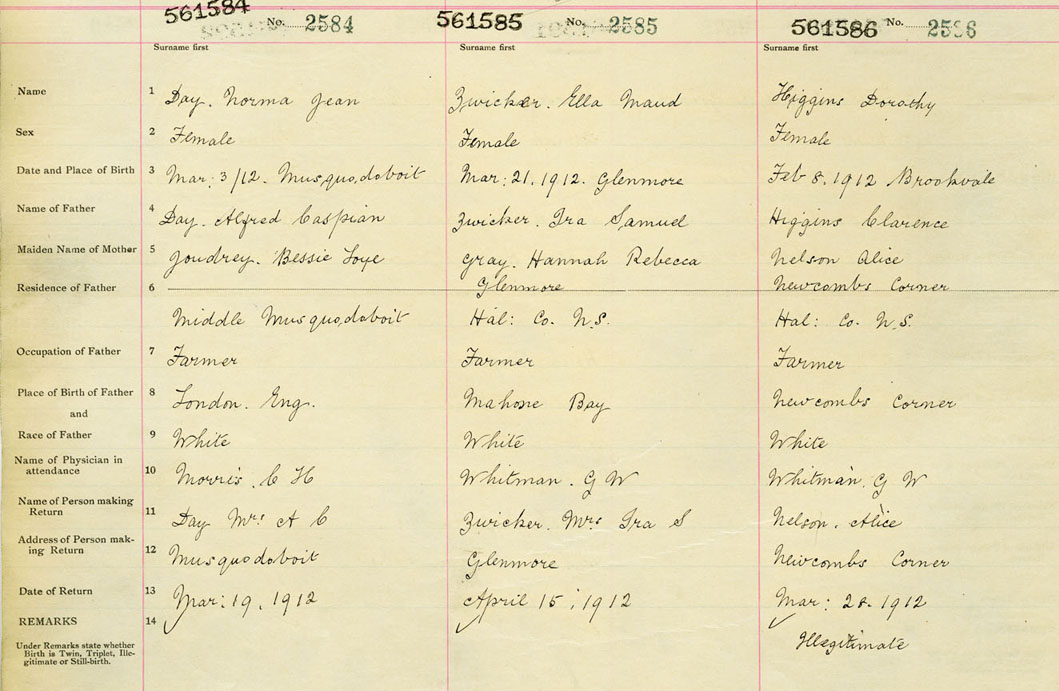 561584 No. 2584 561585 No. 2585 561586 No. 2586
Surname first Surname first Surname first
Name 1 Day. Norma Jean Zwicker. Ella Maud Higgins Dorothy
Sex 2 Female Female Female
Date and Place of Birth 3 Mar: 3/12. Musquodoboit Mar: 21. 1912. Glenmore Feb 8. 1912 Brookvale
Name of Father 4 Day. Alfred Caspian Zwicker. Ira Samuel Higgins Clarence
Maiden Name of Mother 5 Joudrey. Bessie Loye Gray. Hannah Rebecca Nelson Alice
Residence of Father 6 Glenmore Newcombs Corner
Middle Musquodoboit Hal: Co. N.S. Hal: Co. N.S.
Occupation of Father 7 Farmer Farmer Farmer
Place of Birth of Father 8 London. Eng. Mahone Bay Newcombs Corner
and
Race of Father 9 White White White
Name of Physician in
attendance 10 Morris. C H Whitman. G W Whitman. G W
Name of Person making
Return 11 Day Mrs A C Zwicker. Mrs Ira S Nelson. Alice
Address of Person mak-
ing Return 12 Musquodoboit Glenmore Newcombs Corner
Date of Return 13 Mar: 19. 1912 April 15, 1912 Mar: 28. 1912
REMARKS 14
Under Remarks state whether Illegitimate
Birth is Twin, Triplet, Ille-
gitimate or Still-birth.